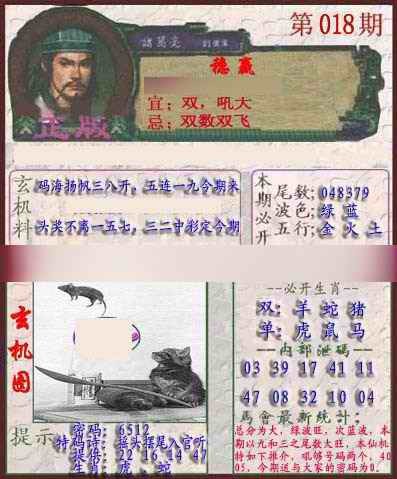 第018期
諸葛亮
稳赢
宜；双，吼大
忌；双数双飞
正版
玄机料
码海扬帆三八开，五连一九今期来
头奖不离一五七，三二寸彩定今期
本期必开
尾数；048379
波色；绿 蓝
五行；金 火 土
玄机图
--必开生肖--
双：羊 蛇 猪
单：虎 鼠 马
--内部泄码--
03 39 17 41 11
47 08 32 10 04
馬會最新統計：
总分为大，绿波旺，次蓝波，本
期以九和三之尾数大旺，本仙机
特如下推介，吼够号码两个，40
05，今期送与大家的密码为0．
提示
密码；6512
特码诗；摇头摆尾入官听
提供；22 16 14 47
生肖；虎 、蛇